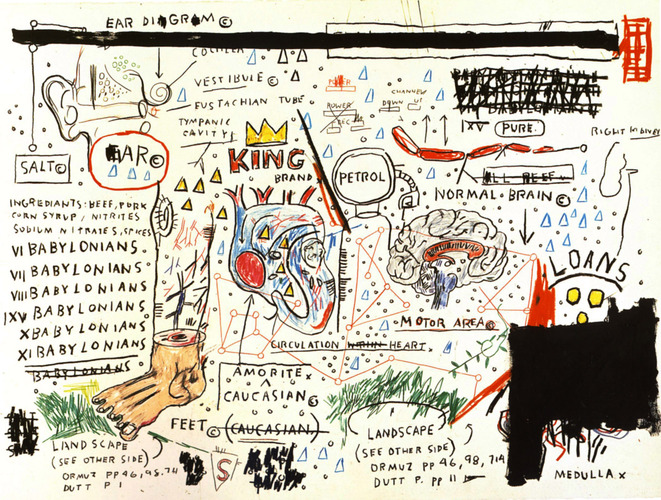 EAR DIAGRAM©
COCHLEA
VESTIBULE©
EUSTACHIAN TUBE
TYMPANIC
CAVITY
EAR©
SALT©
KING
BRAND
POWER
POWER
DOWN
CHANNEL
UP
PETROL
BABYLONIANS
IXV PURE.
ALL BEEF
NORMAL BRAIN©
LOANS
INGREDIANTS: BEEF, PORK
CORN SYRUP / NITRITES
SODIUM NITRATES, SPICES
VI BABYLONIANS
VII BABYLONIANS
VIII BABYLONIANS
IXV BABYLONIANS
X BABYLONIANS
XI BABYLONIANS
BABYLONIANS
MOTOR AREA©
CIRCULATION WITHIN HEART.
AMORITE x
CAUCASIAN©
(CAUCASIAN)
FEET©
S
LANDSCAPE
(SEE OTHER SIDE)
ORMUZ PP 46, 98, 714
DUTT P 1
LANDSCAPE
(SEE OTHER SIDE)
ORMUZ PP 46, 98, 714
DUTT P. PP 11
MEDULLA x